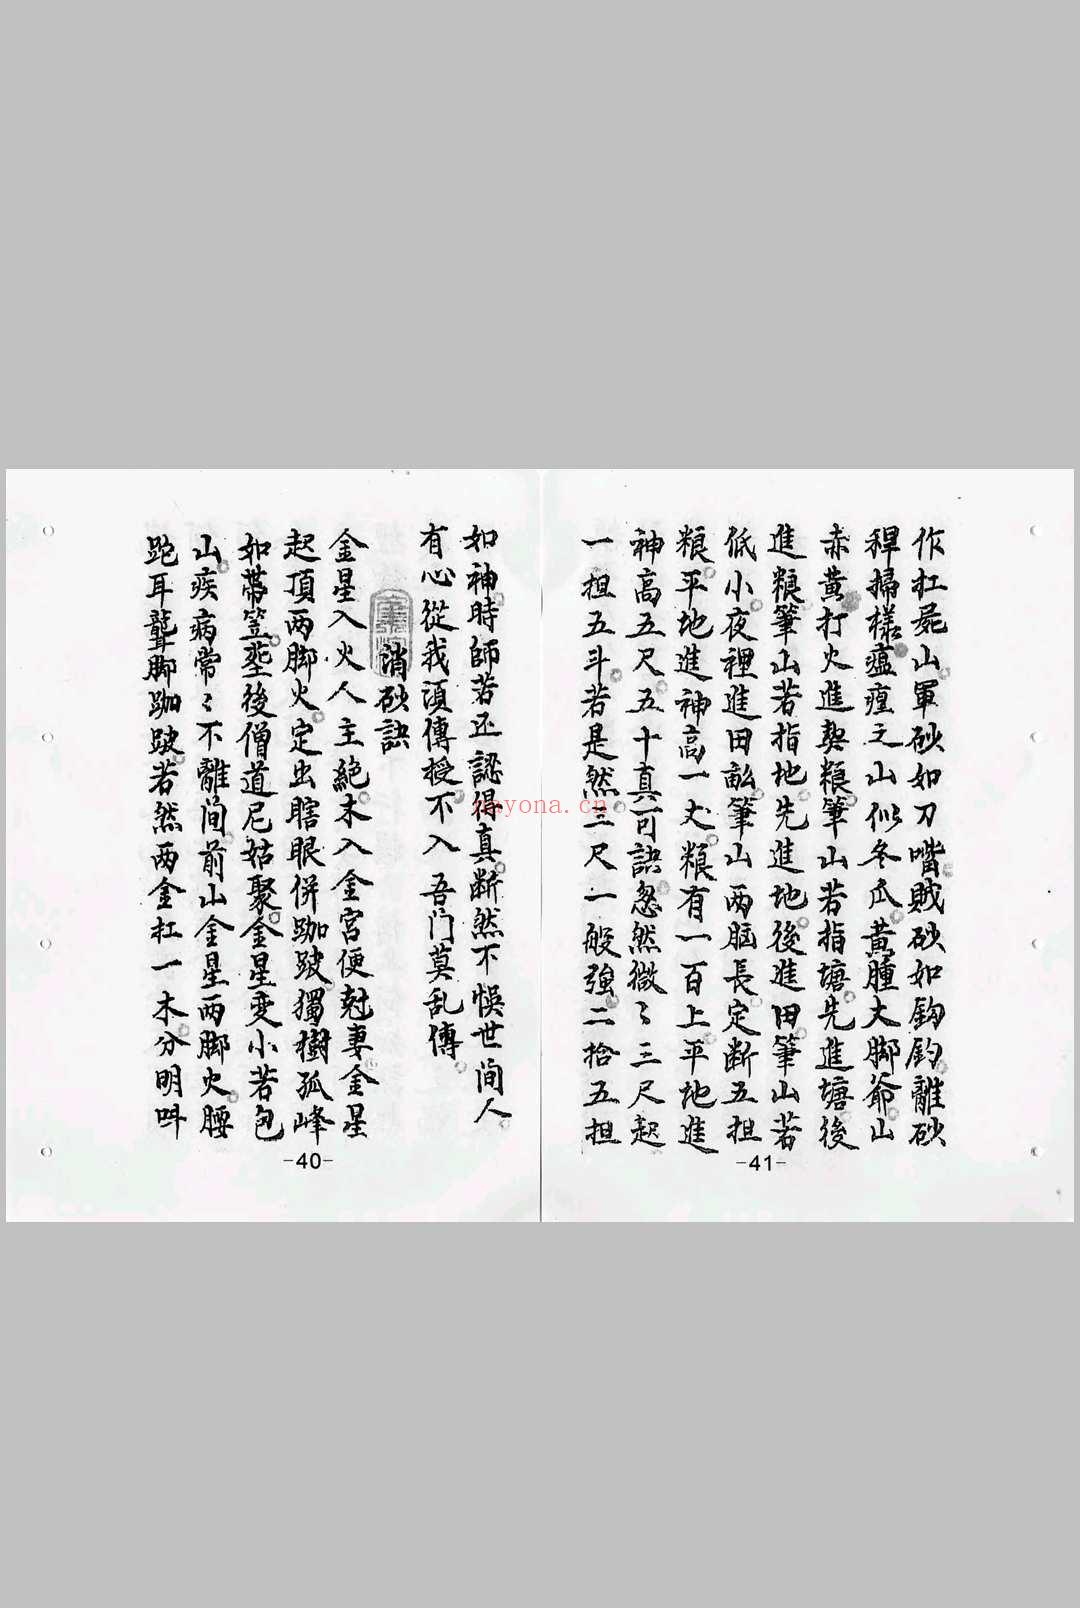 作扛屍山軍砂如刀嘴賊砂如鈎鈎離砂
稈掃樣瘟㾏之山似冬瓜黃腫大脚爺山
赤黃打火進契粮筆山若指塘先進塘後
進粮筆山若指地先進地後進田筆山若
低小夜裡進田畝筆山两腦長定断五担
粮平地進神高一丈粮有一百上平地進
神高五尺五十真可訣忽然微〻三尺起
一担五斗若是然三尺一般強二拾五担
-41-
如神時師若还認得真断然不悮世间人
有心從我須傳授不入吾门莫乱傳
消砂訣
金星入火人主絕木入金宮便尅妻金星
起頂两脚火定出瞎眼併跏跛獨樹孤峰
如帶笠塟後僧道尼姑聚金星变小若包
山疾病常〻不離间前山金星两脚火腰
跎耳聾脚跏跛若然两金扛一木分明呌
-40-
nayona.cn